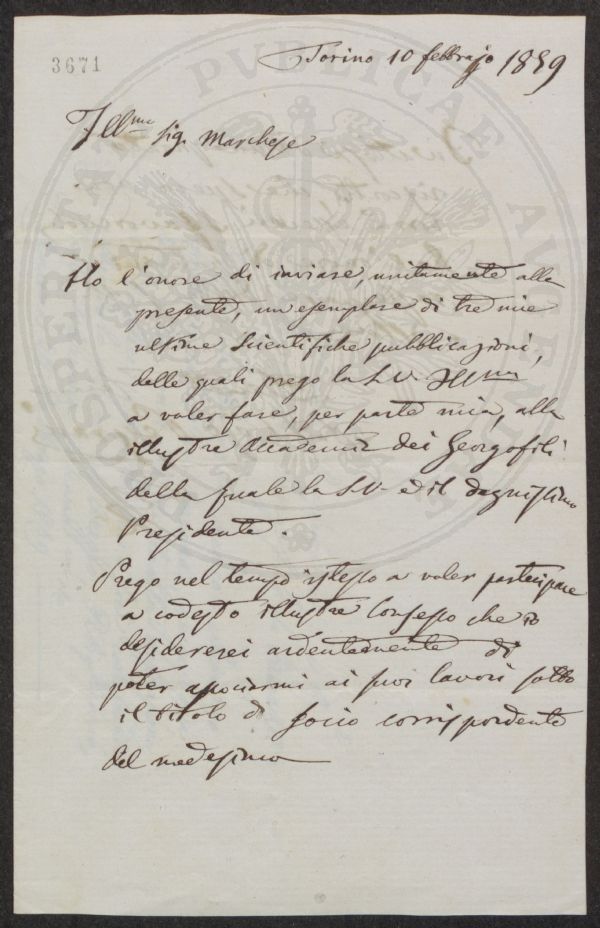 3671
Torino 10 febbrajo 1859
Ill.mo Sig. Marchese
Ho l'onore di inviare, unitamente alla
presente, un esemplare di tre mie
ultime Scientifiche pubblicazioni,
delle quali prego la S.V. Ill.ma
a voler fare, per parte mia, alla
illustre Accademia dei Georgofili
della quale la S.V. è il degnissimo
Presidente.
Prego nel tempo istesso a voler partecipare
a codesto illustre Consesso che io
desidererei ardentemente di
poter associarmi ai suoi lavori sotto
il titolo di Socio corrispondente
del medesimo
PROSPERITATI PVBLICAE AVGENDAE